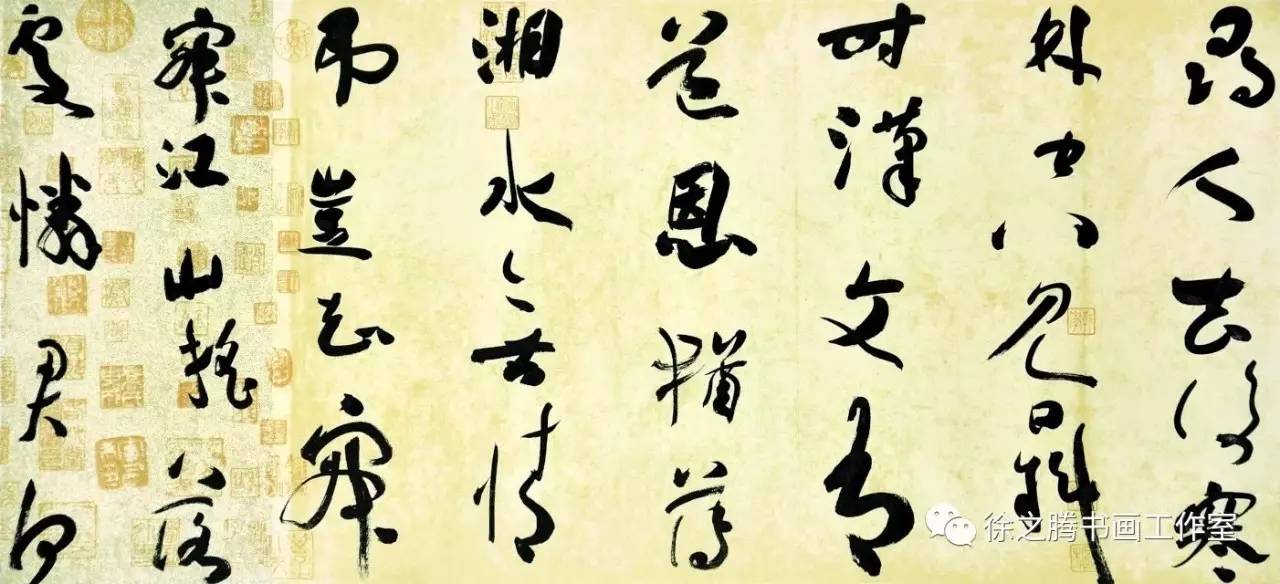 尋人去後寒
林空見日斜
時漢文有
道恩猶薄
湘水無情
弔豈知寂
寂江山搖落
處憐君何
徐之腾书画工作室